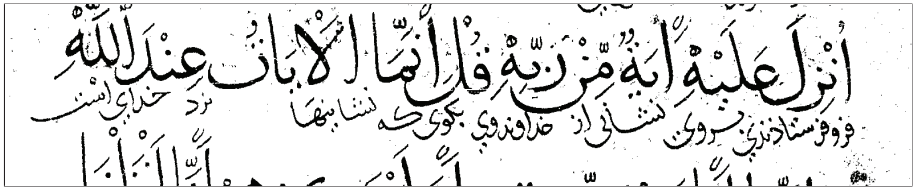 أُنْزِلَ عَلَيْهِ آيَةٌ مِّنْ رَبِّهِ قُلْ أَنَّمَا الْآيَاتُ عِنْدَ اللَّهِ
فروفرستادندي بروي نشانى از خداوندوي بكوى كه نشانيها نزد خداي است